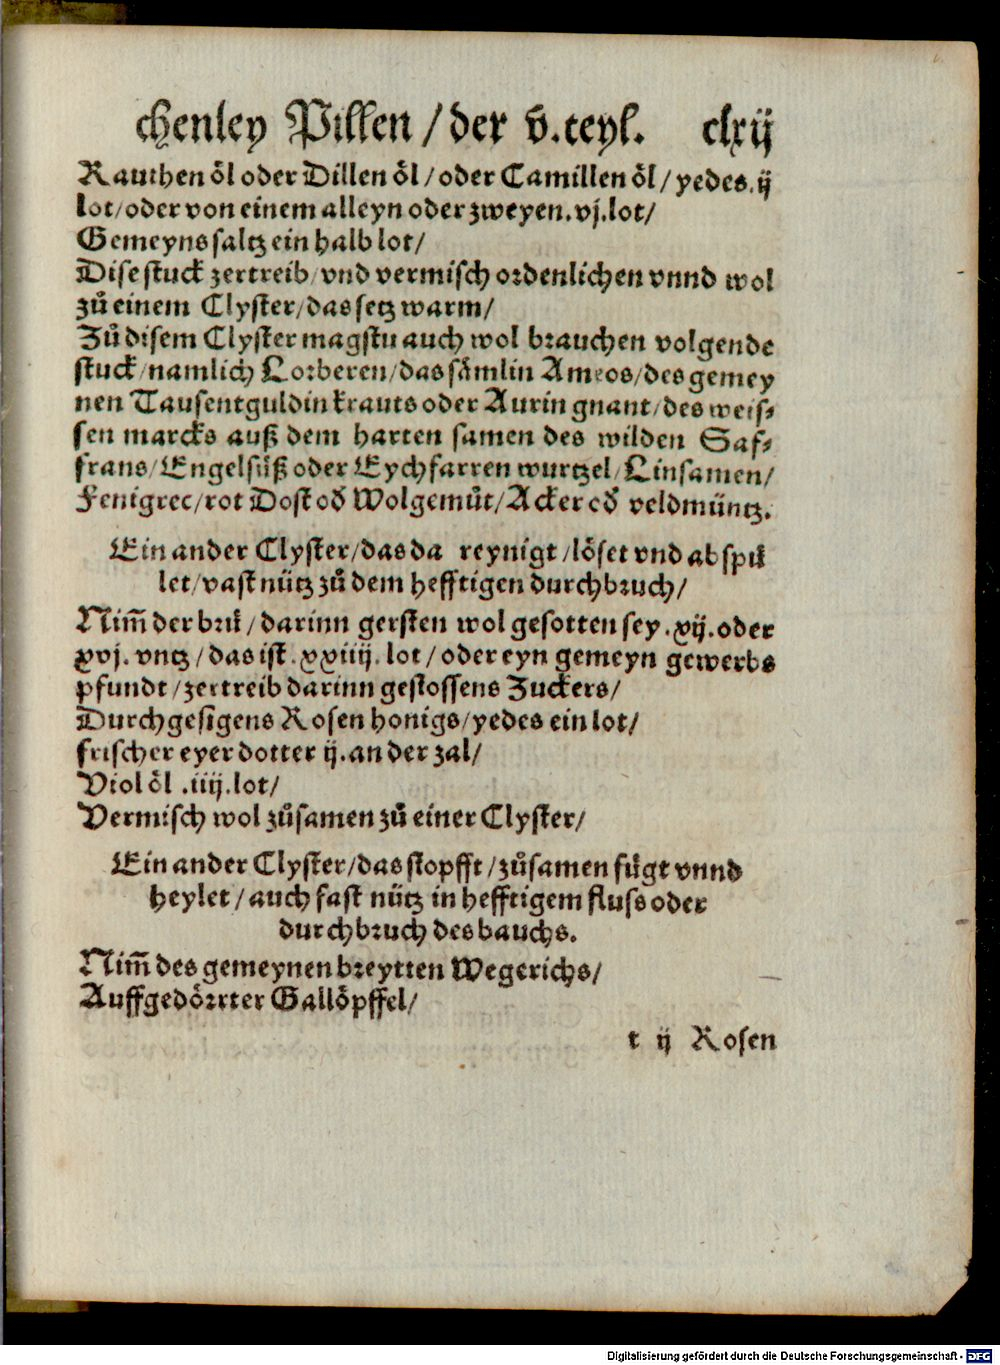 chenley Pillen / der v̈. teyl. clxij
Rauthen öl oder Dillen öl / oder Camillen öl / yedes. ij
lot / oder von einem alleyn oder zweyen. vj. lot /
Gemeyns saltz ein halb lot /
Dise stuck zertreib / vnd vermisch ordenlichen vnnd wol
zů einem Clyster / das setz warm /
Zů disem Clyster magstu auch wol brauchen volgende
stuck / namlich Lorberen / das sämlin Ameos / des gemey
nen Tausentguldinkrauts oder Aurin gnant / des weis⸗
sen marcks auß dem harten samen des wilden Saf⸗
frans / Engelsüß oder Eychfarren wurtzel / Linsamen /
Fenigrec / rot Dost od̕ Wolgemůt / Acker od̕ veldmüntz.
Ein ander Clyster / das da reynigt / löset vnd ab spü
let / vast nütz zů dem hefftigen durchbruch /
Nim̄ der brü / darinn gersten wol gesotten sey. xij. oder
xvj. vntz / das ist. xxiiij. lot / oder eyn gemeyn gewerbs
pfundt / zertreib darinn gestossens Zuckers /
Durchgesigens Rosen honigs / yedes ein lot /
frischer eyer dotter ij. an der zal /
Viol öl .iiij. lot /
Vermisch wol zůsamen zů einer Clyster /
Ein ander Clyster / das stopfft / zůsamen fügt vnnd
heylet / auch fast nütz in hefftigem fluss oder
durchbruch des bauchs.
Nim̄ des gemeynen breytten Wegerichs /
Auffgedörrter Gallöpffel /
t ij Rosen
Digitalisierung gefördert durch die Deutsche Forschungsgemeinschaft - DFG